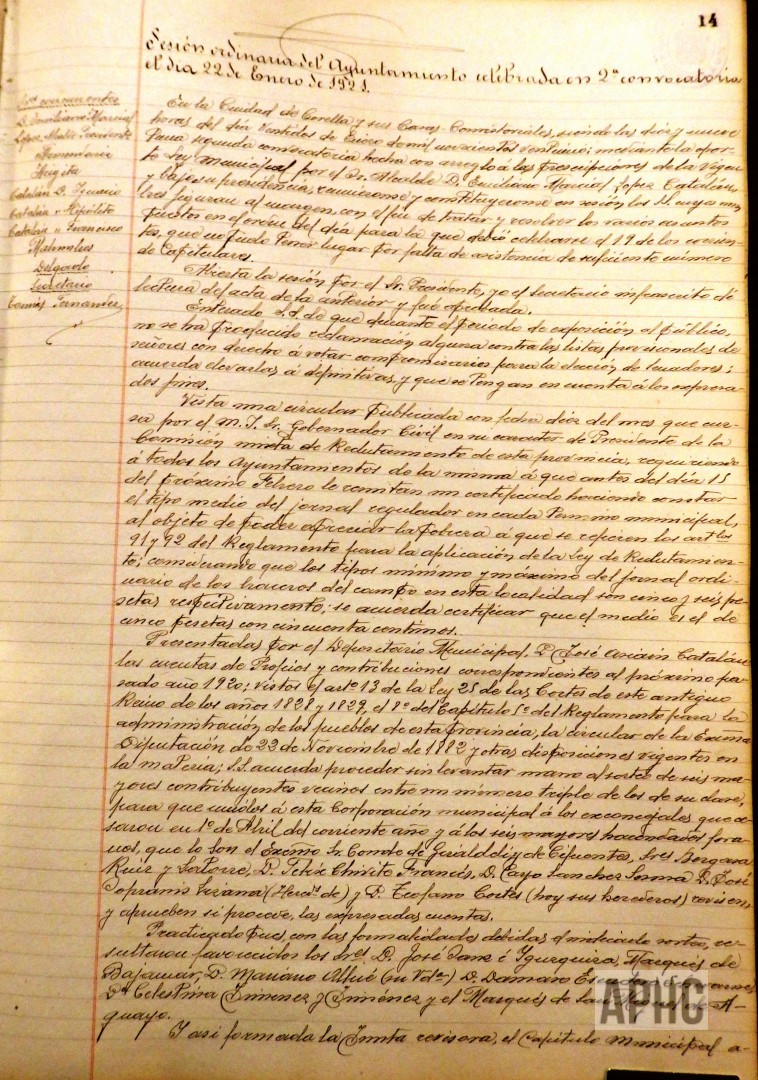 14
Sesión ordinaria del Ayuntamiento celebrada en 2ª convocatoria
el dia 22 de Enero de 1921.
Sres concurrentes
D. Emiliano Marcial
López Alcalde Presidente
Catalán D. Ignacio
Catalán " Hipólito
Catalán " Francisco
Delgado
Secretario
Comín Fernandez
En la Ciudad de Corella y sus Casas-Consistoriales, siendo las diez y nueve
horas del dia veintidos de Enero de mil novecientos veintiuno; mediante la opor-
tuna segunda convocatoria hecha con arreglo á las prescripciones de la vigen-
te Ley Municipal por el Sr. Alcalde D. Emiliano Marcial Lopez Catalán,
y bajo su presidencia, reunieronse y constituyeronse en sesión los SS. cuyos nom-
bres figuran al margen, con el fin de tratar y resolver los varios asuntos
puestos en el orden del dia para la que debió celebrarse el 19 de los corrien-
tes, que no pudo tener lugar por falta de asistencia de suficiente número
de Capitulares.
Abierta la sesión por el Sr. Presidente, yo el Secretario infrascrito dí
lectura del acta de la anterior y fué aprobada.
Enterado S.S. de que durante el periodo de exposición al público,
no se ha producido reclamación alguna contra las listas provisionales de
señores con derecho á votar compromisarios para la elección de Senadores;
acuerda elevarlas á definitivas, y que se tengan en cuenta á los expresa-
dos fines.
Vista una circular publicada con fecha diez del mes que cur-
sa por el M. I. Sr. Gobernador Civil en su caracter de Presidente de la
Comisión mixta de Reclutamiento de esta provincia, requiriendo
á todos los Ayuntamientos de la misma á que antes del dia 15
del próximo Febrero le remitan un certificado haciendo constar
el tipo medio del jornal regulador en cada término municipal,
al objeto de poder apreciar la pobreza á que se refieren los artlos
91 y 92 del Reglamento para la aplicación de la Ley de Reclutamien-
to; considerando que los tipos mínimo y máximo del jornal ordi-
nario de los braceros del campo en esta localidad son cinco y seis pe-
setas respectivamente; se acuerda certificar que el medio es el de
cinco pesetas con cincuenta centimos.
Presentadas por el Depositario Municipal D. José Catalán
las cuentas de Propios y contribuciones correspondientes al próximo pa-
sado año 1920; vistos el artº 13 de la Ley 25 de las Cortes de este antiguo
Reino de los años 1828 y 1829, el 8º del Capítulo 5º del Reglamento para la
administración de los pueblos de esta provincia, la circular de la Excma
Diputación de 22 de Noviembre de 1882 y otras disposiciones vigentes en
la materia; S.S. acuerda proceder sin levantar mano al sorteo de seis ma-
yores contribuyentes vecinos entre un número triple de los de su clase,
para que unidos á esta Corporación municipal á los exconcejales que ce-
saron en 1º de Abril del corriente año y á los seis mayores hacendados fora-
nos, que lo son el Excmo Sr. Conde de Giraldeli y de Cifuentes, Sres Bergara
Ruiz y D. Felix Chivite Francés, D. Cayo Sanchez Sesma D. José
Sopranis (Herds de) y D. Teofano Cortés (hoy sus herederos) revisen,
y aprueben si procede, las expresadas cuentas.
Practicado pues con las formalidades debidas el indicado sorteo, re-
sultaron favorecidos los Sres. D. José Sanz é Marqués de
Bajamar, D. Mariano (su Vda) D. Damaso
Dª Celestina Jimenez y Jiménez y el Marqués de San Miguel de A-
guayo.
Y asi formada la Junta revisora, el Capítulo Municipal a-
APHC